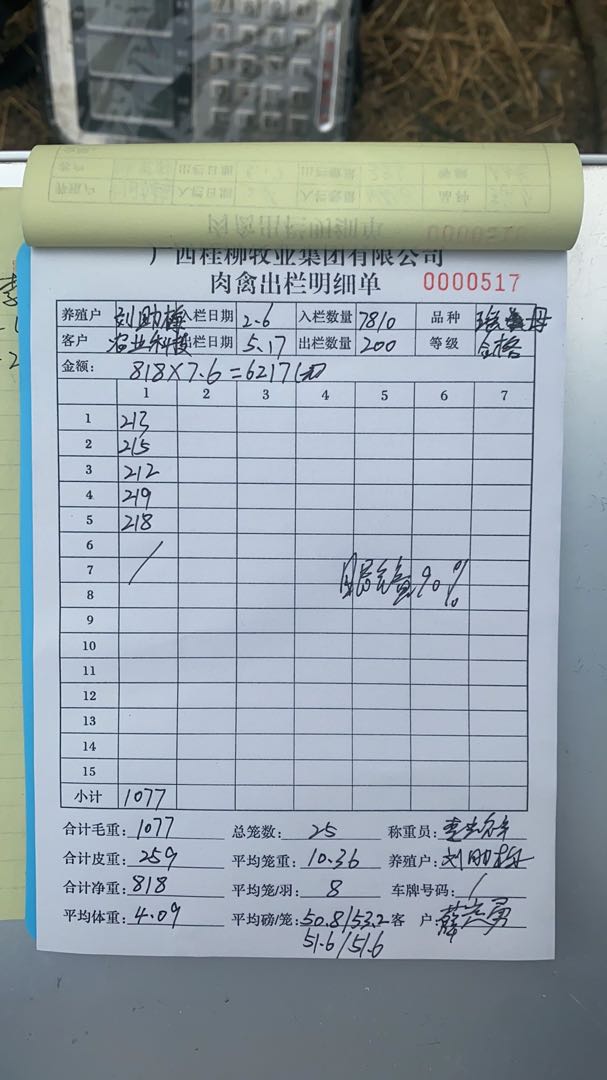 广西桂柳牧业集团有限公司
肉禽出栏明细单 0000517
养殖户 刘助梅 入栏日期 2.6 入栏数量 7810 品种
客户 农业科技 出栏日期 5.17 出栏数量 200 等级 合格
金额: 818×7.6=6217
1 2 3 4 5 6 7
1 213
2 215
3 212
4 219
5 218
6
7 90%
8
9
10
11
12
13
14
15
小计 1077
合计毛重: 1077 总笼数: 25 称重员:
合计皮重: 259 平均笼重: 10.36 养殖户: 刘助梅
合计净重: 818 平均笼/羽: 8 车牌号码: /
平均体重: 4.09 平均磅/笼: 50.8/53.2 客 户:
51.6/51.6